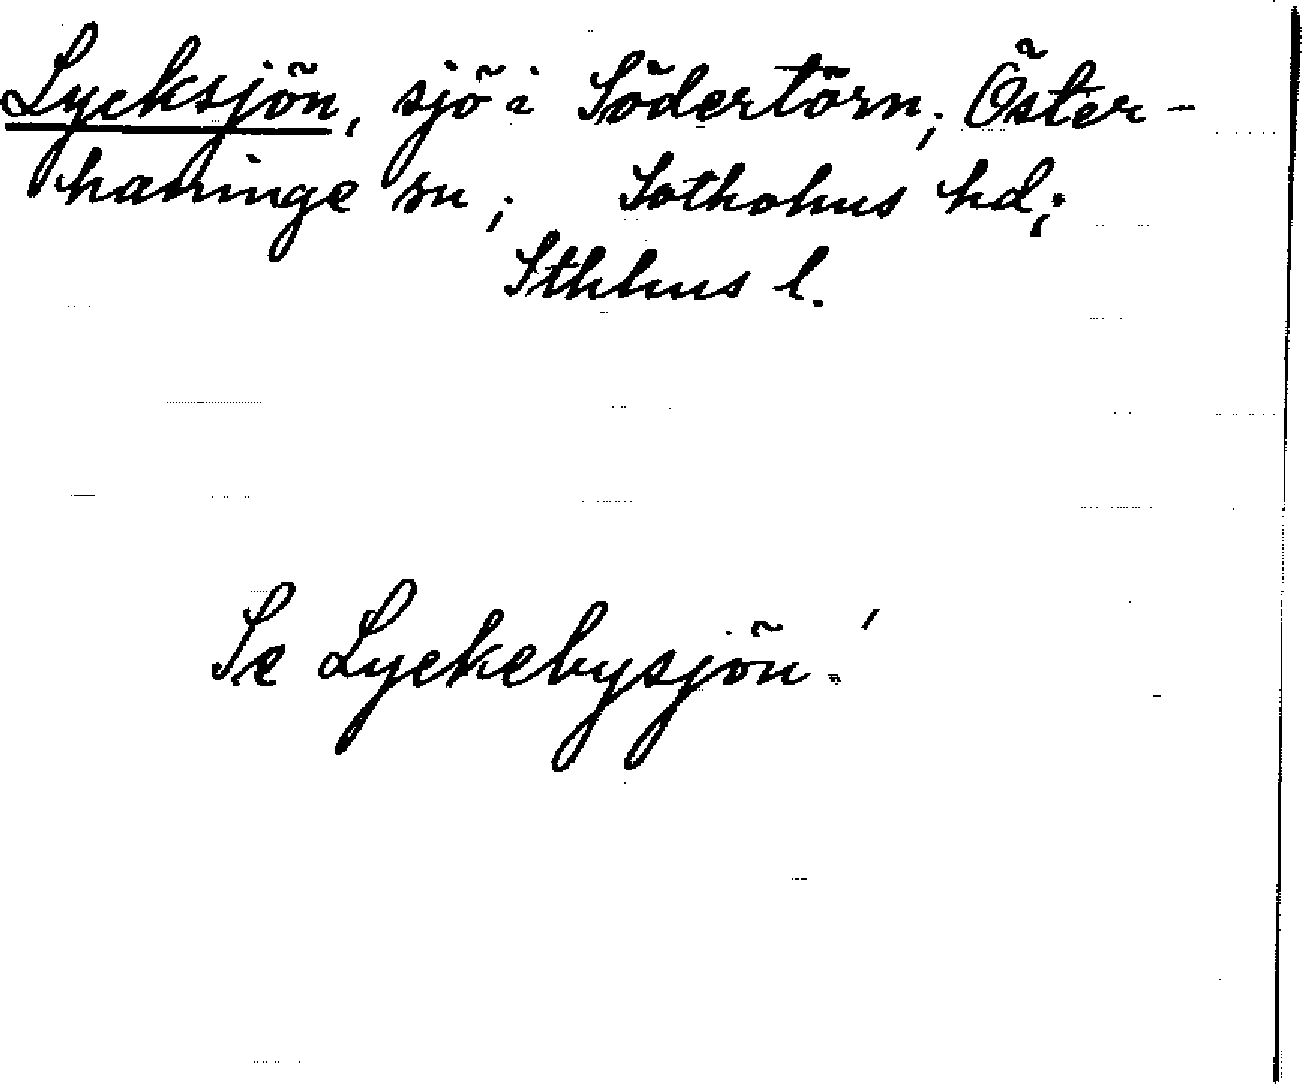 Lycksjön, sjö i Södertörn; Öster-
haninge sn; Sotholms hd;
Sthlms l.
Se Lyckebysjön!